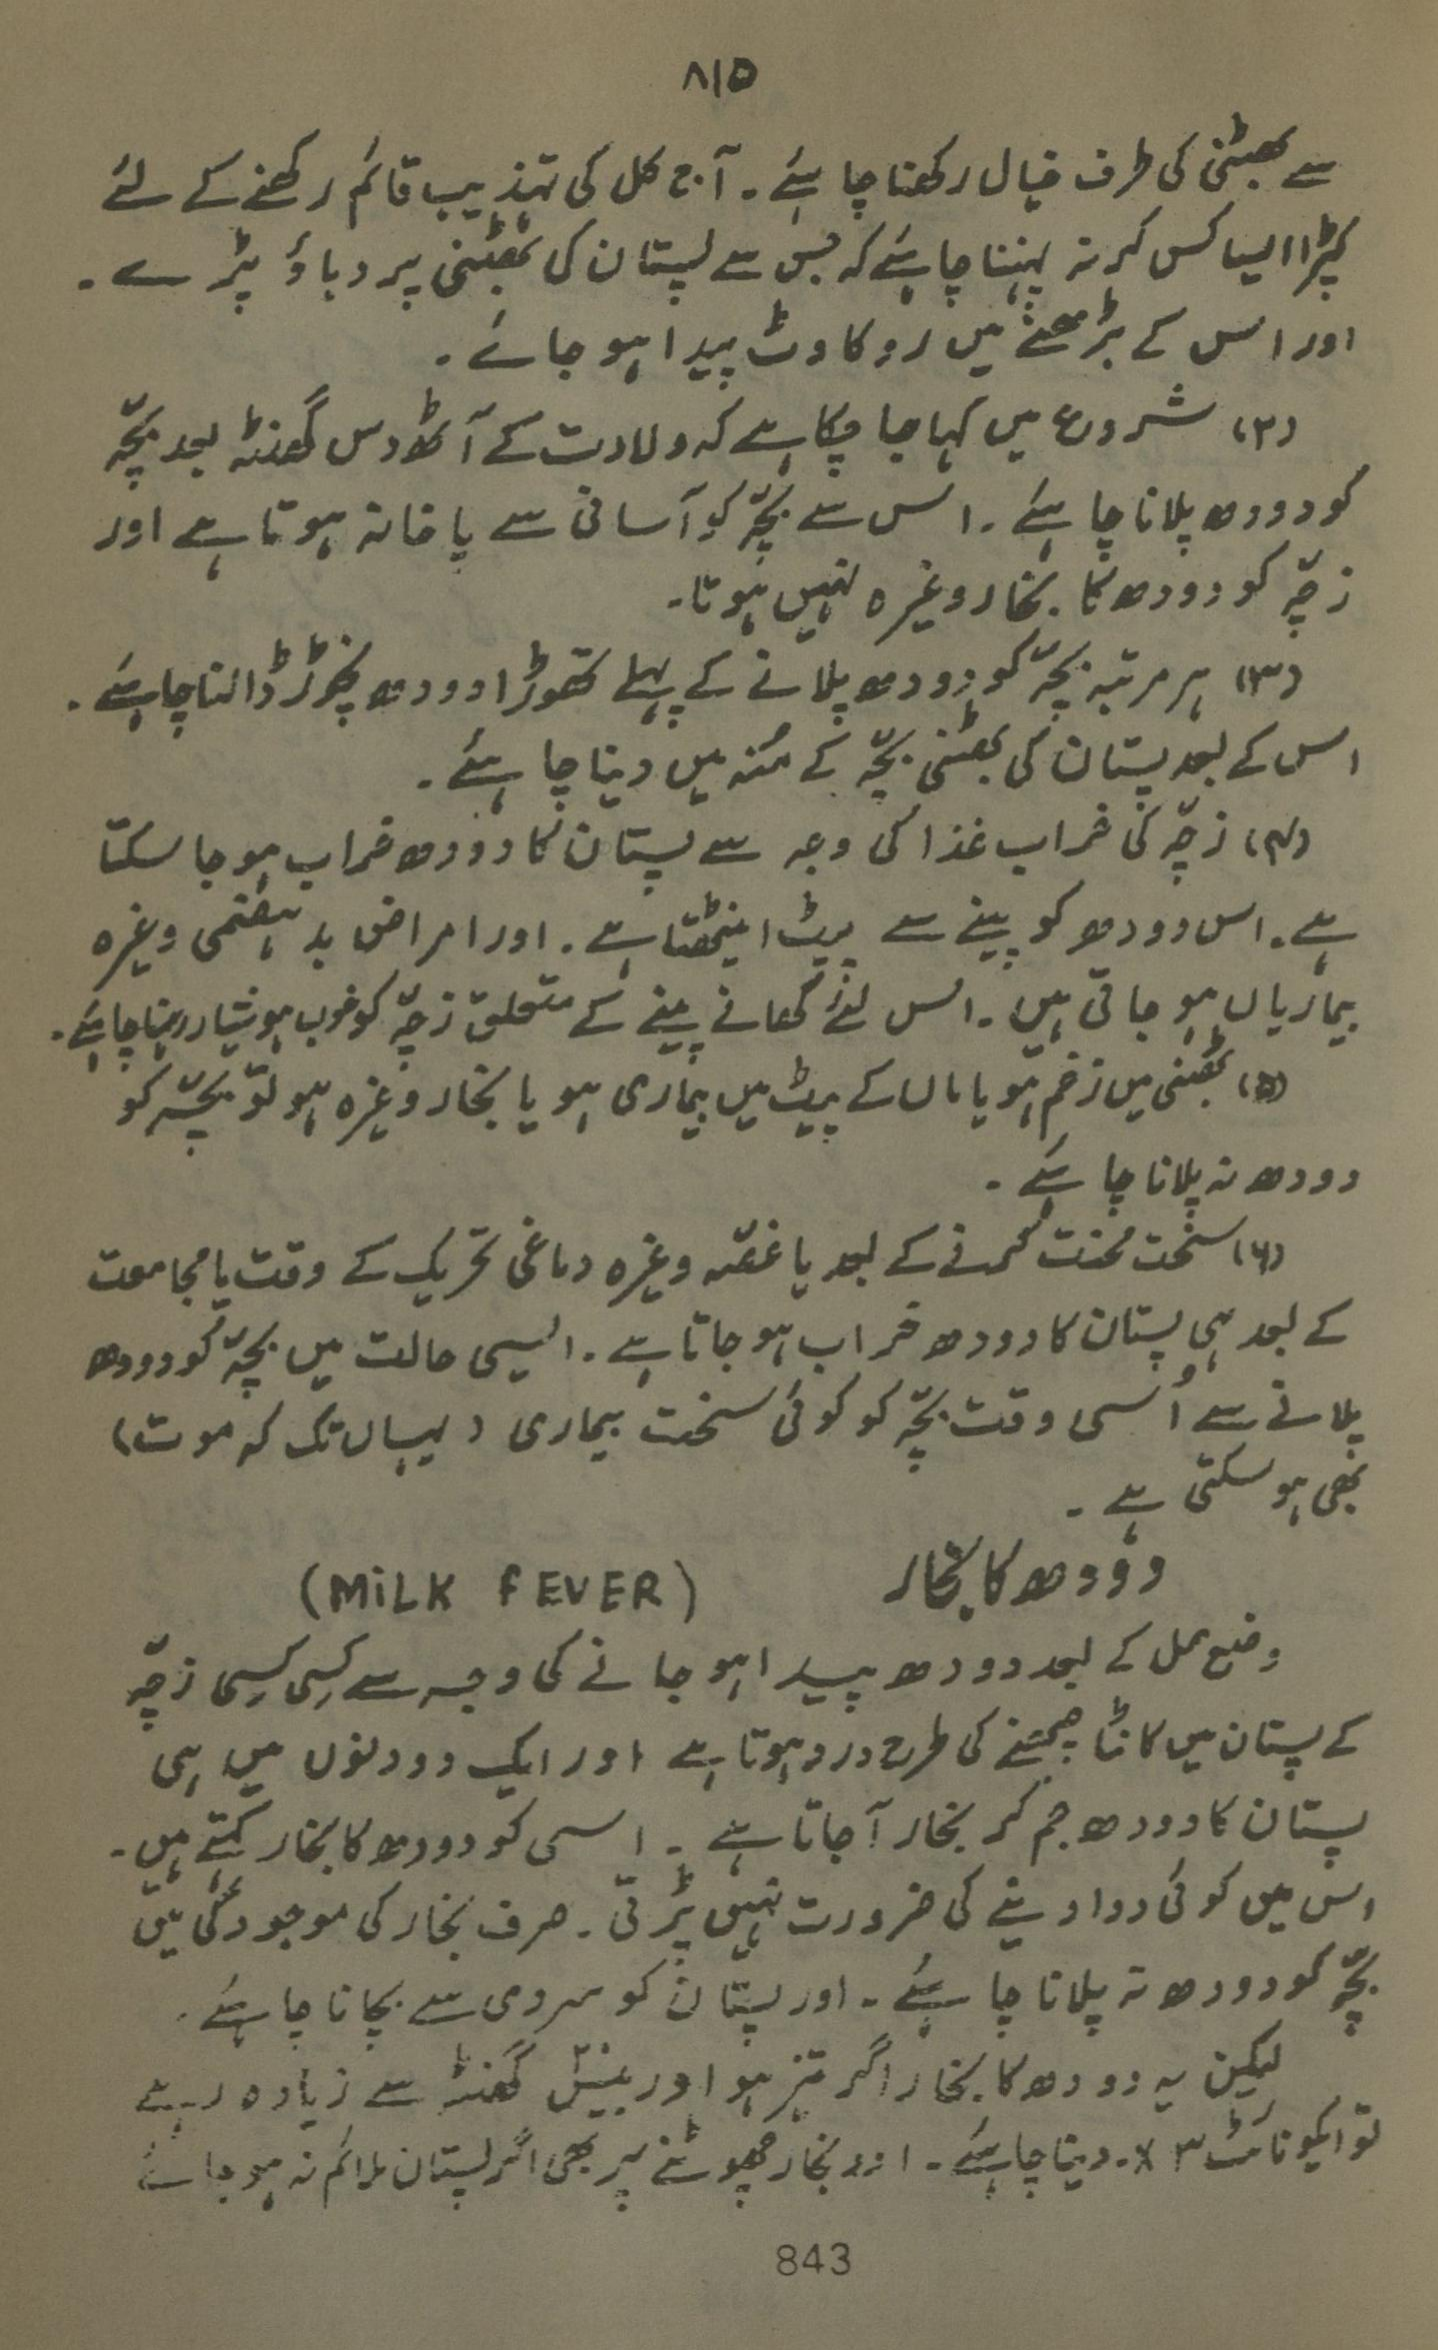 ۸۱۵
سے بھٹنی کی طرف خیال رکھنا چاہئے۔ آج کل کی تہذیب قائم رکھنے کے لئے
کپڑا ایسا کس کر نہ پہننا چاہئے کہ جس سے پستان کی بھٹنی پر دباؤ پڑے۔
اور اس کے بڑھنے میں روکاوٹ پیدا ہو جائے۔
(۲) شروع میں کہا جا چکا ہے کہ ولادت کے آٹھ دس گھنٹہ بعد بچّہ
کو دودھ پلانا چاہئے۔ اس سے بچّہ کو آسانی سے پاخانہ ہوتا ہے اور
زچّہ کو دودھ کا بخار وغیرہ نہیں ہوتا۔
(۳) ہر مرتبہ بچّہ کو دودھ پلانے کے پہلے تھوڑا دودھ نچوڑ ڈالنا چاہئے۔
اس کے بعد پستان کی بھٹنی بچّہ کے مُنہ میں دینا چاہئے۔
(۴) زچّہ کی خراب غذا کی وجہ سے پستان کا دودھ خراب ہو جا سکتا
ہے۔ اس دودھ کو پینے سے پیٹ اینٹھتا ہے۔ اور امراض بد ہضمی وغیرہ
بیماریاں ہو جاتی ہیں۔ اس لئے کھانے پینے کے متعلق زچّہ کو خوب ہوشیار رہنا چاہئے۔
(۵) بھٹنی میں زخم ہو یا ماں کے پیٹ میں بیماری ہو یا بخار وغیرہ ہو تو بچّہ کو
دودھ نہ پلانا چاہئے۔
(۶) سخت محنت کرنے کے بعد یا غصّہ وغیرہ دماغی تحریک کے وقت یا مجامعت
کے بعد ہی پستان کا دودھ خراب ہو جاتا ہے۔ ایسی حالت میں بچّہ کو دودھ
پلانے سے اُسی وقت بچّہ کو کوئی سخت بیماری (یہاں تک کہ موت)
بھی ہو سکتی ہے۔
دودھ کا بخار (MiLK FEVER)
وضع حمل کے بعد دودھ پیدا ہو جانے کی وجہ سے کسِی کسِی زچّہ
کے پستان میں کانٹا چبھنے کی طرح درد ہوتا ہے اور ایک دو دنوں میں ہی
پستان کا دودھ جم کر بخار آ جاتا ہے۔ اسی کو دودھ کا بخار کہتے ہیں۔
اس میں کوئی دوا دینے کی ضرورت نہیں پڑتی۔ صرف بخار کی موجودگی میں
بچّہ کو دودھ نہ پلانا چاہئے۔ اور پستان کو سردی سے بچانا چاہئے۔
لیکن یہ دودھ کا بخار اگر تیز ہو اور بیس گھنٹہ سے زیادہ رہے
تو ایکونائٹ ۳x۔ دینا چاہئے۔ اور بخار چھوٹنے پر بھی اگر پستان ملائم نہ ہو جائے
843